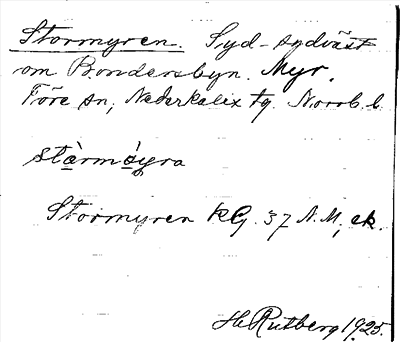 Stormyren. Syd-sydväst
om Bondersbyn. Myr.
Töre sn, Nederkalix tg. Norrb. l.
stàrmǿyra
Stormyren KG. 37 N.M; ek.
H. Rutberg 1925.